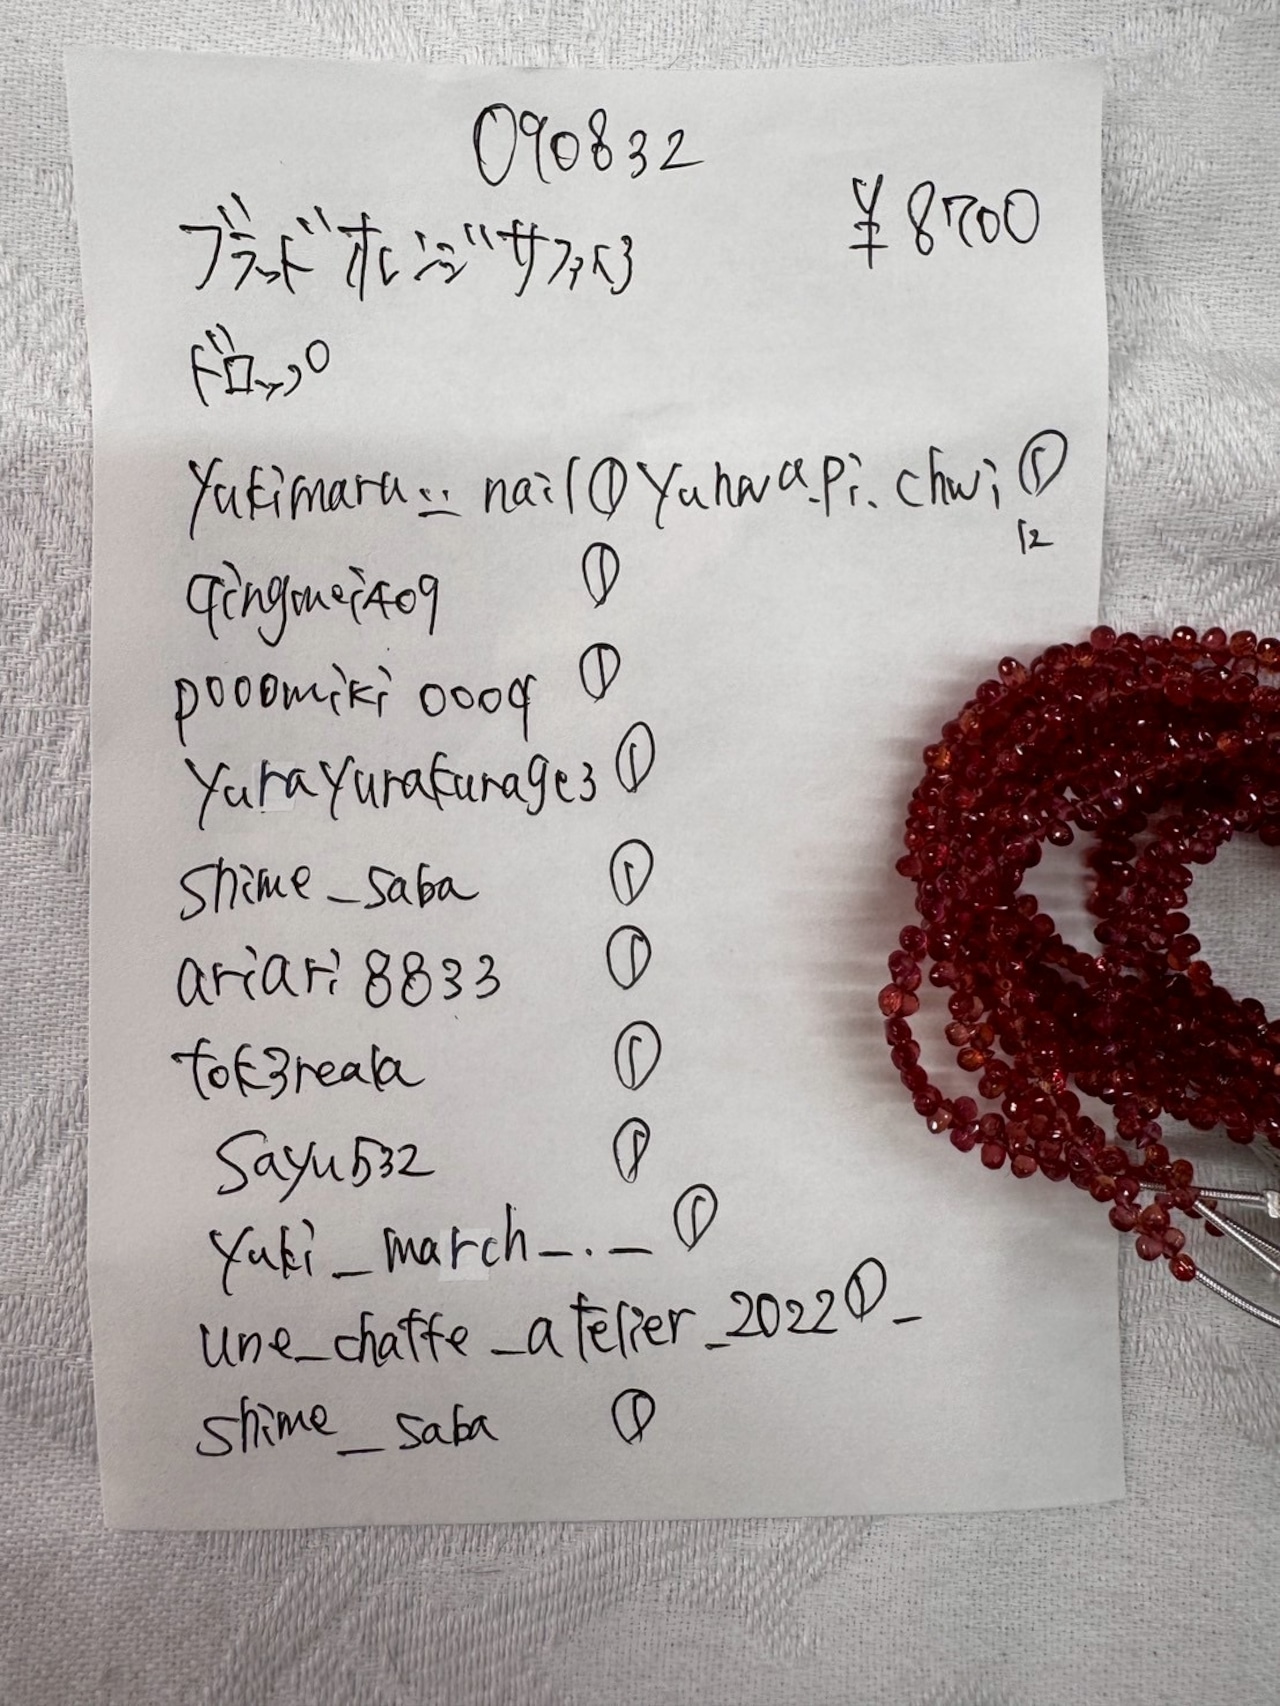 090832
ブラッドオレンジサファイヤ ¥8700
ドロップ
yukimaru_.._nail① yuhwa.pi.chwi①
12
qingmei409 ①
pooomiki0009 ①
yurayurakurage3 ①
shime_saba ①
ariari8833 ①
tok3reala ①
sayu532 ①
yuki_march_._ ①
une_chatte_atelier_2022①_
shime_saba ①